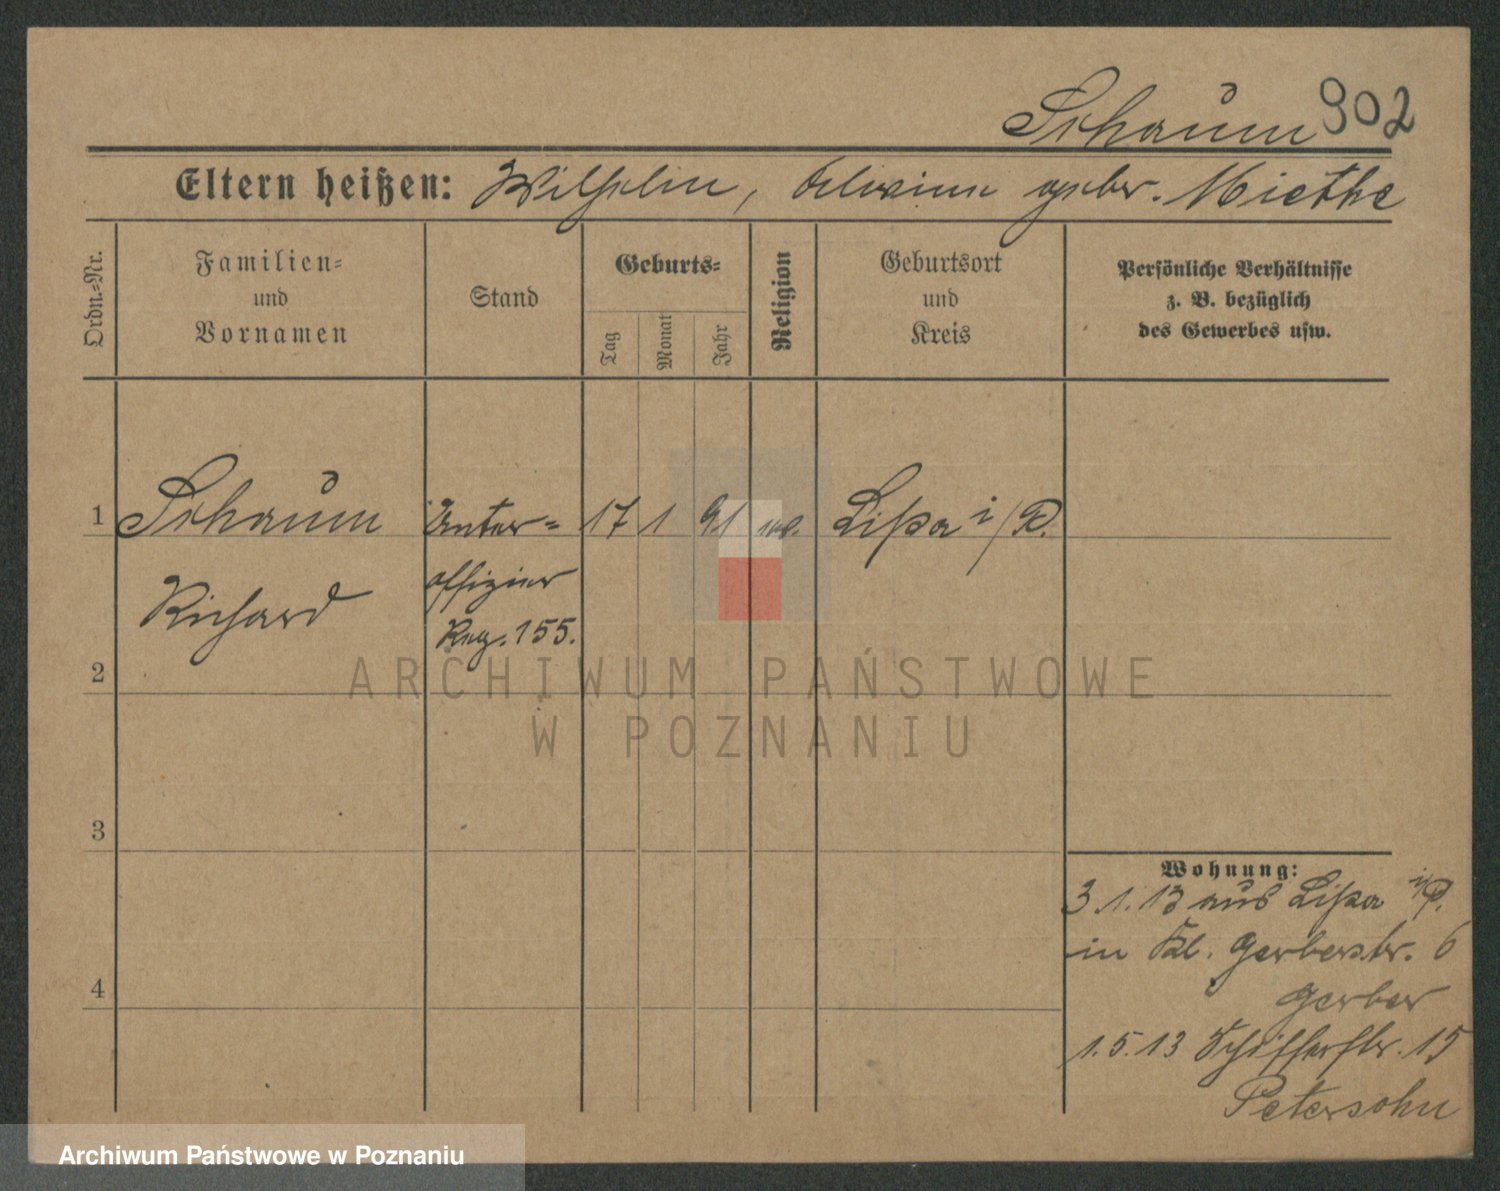 Schaum 902
Eltern heißen: Wilhelm, geber. Miethe
Ordn.-Nr.
Familien- und Vornamen
Stand
Geburts-
Tag
Monat
Jahr
Religion
Geburtsort und Kreis
Persönliche Verhältnisse
z. B. bezüglich
des Gewerbes usw.
1 Schaum Unter- 17 1 91 Lißa i/P.
Richard offizier
Reg. 155.
2
3
4
Wohnung:
3.1.13 aus Lißa i/P.
in Kl. Gerberstr. 6
Gerber
1.5.13 Schifferstr. 15
Petersohn
ARCHIWUM PAŃSTWOWE
W POZNANIU
Archiwum Państwowe w Poznaniu